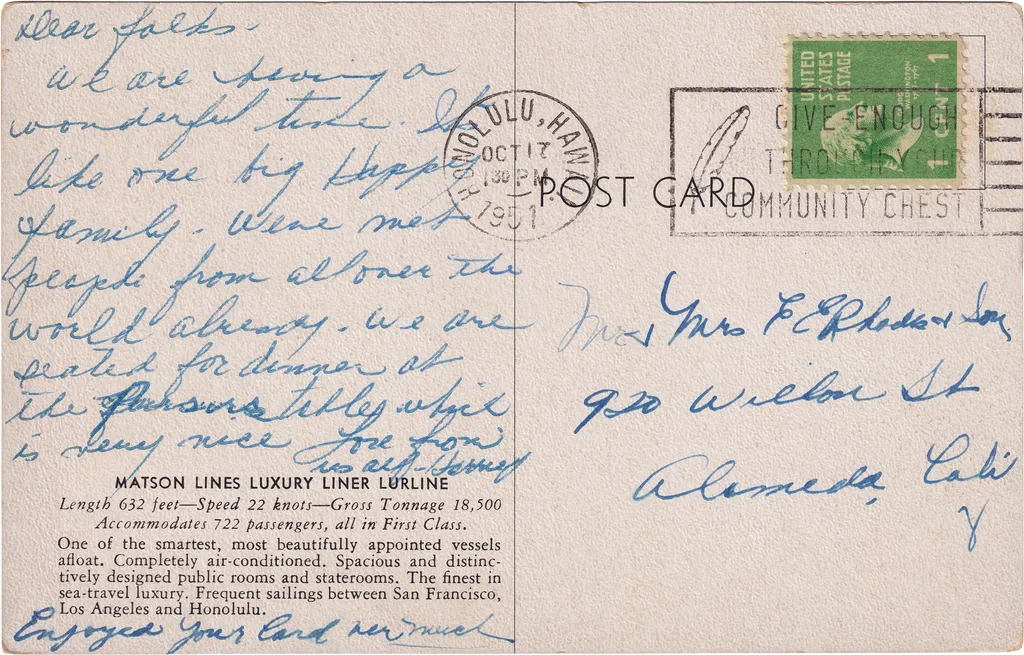 Dear folks-
We are having a
wonderful time. Its
like one big Happy
family. Weve met
people from all over the
world already. We are
seated for dinner at
the Pursers table, which
is very nice Love from
us all - Harriet
MATSON LINES LUXURY LINER LURLINE
Length 632 feet—Speed 22 knots—Gross Tonnage 18,500
Accommodates 722 passengers, all in First Class.
One of the smartest, most beautifully appointed vessels
afloat. Completely air-conditioned. Spacious and distinc-
tively designed public rooms and staterooms. The finest in
sea-travel luxury. Frequent sailings between San Francisco,
Los Angeles and Honolulu.
Enjoyed your Card very much
HONOLULU, HAWAII
OCT 17
130 PM
1951
POST CARD
UNITED
STATES
POSTAGE
WASHINGTON
1 CENT 1
GIVE ENOUGH
THROUGH YOUR
COMMUNITY CHEST
Mr & Mrs F E Rhodes & Son
920 Willow St
Alameda, Calif